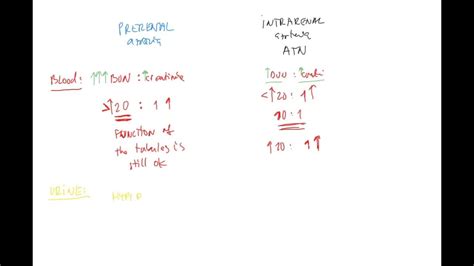 PRERENAL
azotemia
INTRARENAL
azotemia
ATN
Blood: ↑↑↑ BUN : ↑creatinine
>↑20 : 1↑
FUNCTION OF
the tubules is
still ok
↑BUN : ↑creati
<↑20 : 1↑
10 : 1
↑10 : 1↑
URINE: